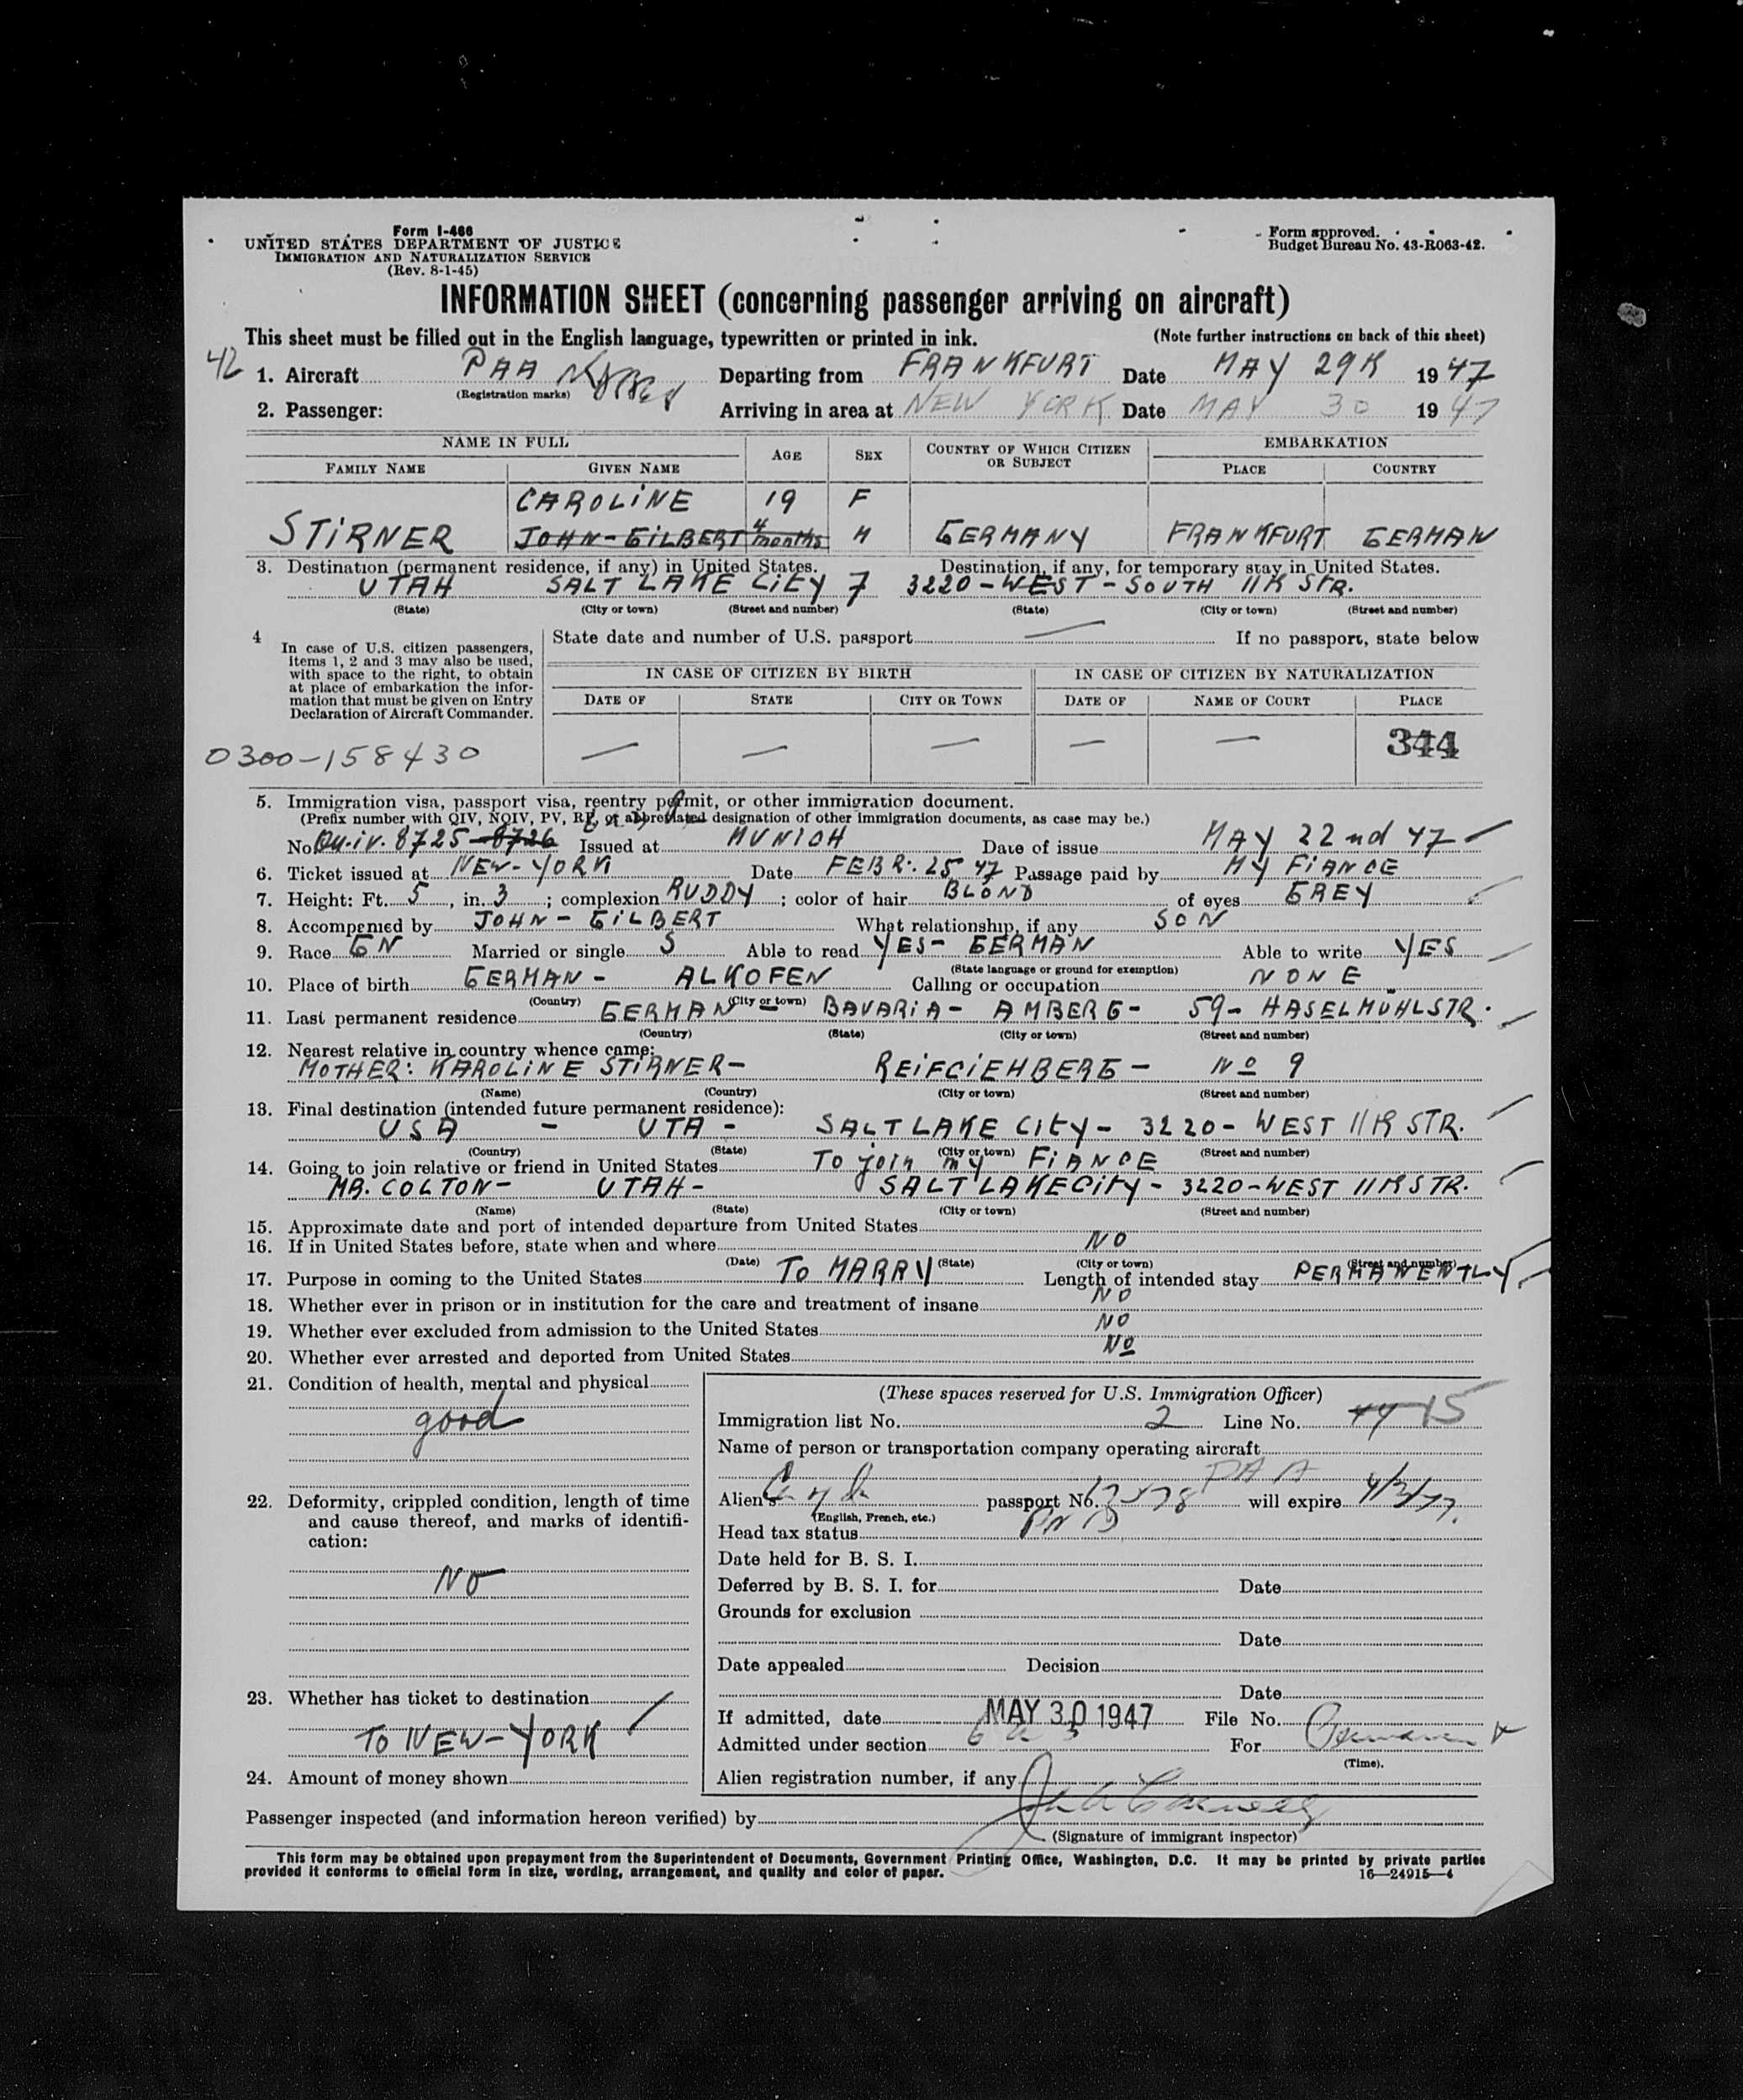 Form I-466
UNITED STATES DEPARTMENT OF JUSTICE
IMMIGRATION AND NATURALIZATION SERVICE
(Rev. 8-1-45)
Form approved.
Budget Bureau No. 43-R063-42.
INFORMATION SHEET (concerning passenger arriving on aircraft)
This sheet must be filled out in the English language, typewritten or printed in ink. (Note further instructions on back of this sheet)
42
1. Aircraft PAA Departing from FRANKFURT Date MAY 29th 1947
(Registration marks)
2. Passenger: Arriving in area at NEW YORK Date MAY 30 1947
NAME IN FULL AGE SEX COUNTRY OF WHICH CITIZEN OR SUBJECT EMBARKATION
FAMILY NAME GIVEN NAME PLACE COUNTRY
CAROLINE 19 F
STIRNER JOHN-GILBERT 4 months M GERMANY FRANKFURT GERMAN
3. Destination (permanent residence, if any) in United States. Destination, if any, for temporary stay in United States.
UTAH SALT LAKE CITY 7 3220-WEST-SOUTH 11th STR.
(State) (City or town) (Street and number) (State) (City or town) (Street and number)
4 In case of U.S. citizen passengers, items 1, 2 and 3 may also be used, with space to the right, to obtain at place of embarkation the information that must be given on Entry Declaration of Aircraft Commander.
State date and number of U.S. passport — If no passport, state below
IN CASE OF CITIZEN BY BIRTH IN CASE OF CITIZEN BY NATURALIZATION
DATE OF STATE CITY OR TOWN DATE OF NAME OF COURT PLACE
— — — — — 344
0300-158430
5. Immigration visa, passport visa, reentry permit, or other immigration document.
(Prefix number with QIV, NQIV, PV, RP, or abbreviated designation of other immigration documents, as case may be.)
No. Qu.iv. 8725-8726 Issued at MUNICH Date of issue MAY 22nd 47
6. Ticket issued at NEW-YORK Date FEBR. 25 47 Passage paid by MY FIANCE
7. Height: Ft. 5, in. 3; complexion RUDDY; color of hair BLOND of eyes GREY
8. Accompanied by JOHN-GILBERT What relationship, if any SON
9. Race GN Married or single S Able to read YES-GERMAN Able to write YES
(State language or ground for exemption)
10. Place of birth GERMAN - ALKOFEN Calling or occupation NONE
(Country) (City or town)
11. Last permanent residence GERMAN - BAVARIA - AMBERG - 59 - HASELMÜHLSTR.
(Country) (State) (City or town) (Street and number)
12. Nearest relative in country whence came:
MOTHER: KAROLINE STIRNER - REIFCIEHBERG - No 9
(Name) (Country) (City or town) (Street and number)
13. Final destination (intended future permanent residence):
USA - UTA - SALT LAKE CITY - 3220 - WEST 11th STR.
(Country) (State) (City or town) (Street and number)
14. Going to join relative or friend in United States To join my FIANCE
MR. COLTON - UTAH - SALT LAKE CITY - 3220-WEST 11th STR.
(Name) (State) (City or town) (Street and number)
15. Approximate date and port of intended departure from United States
16. If in United States before, state when and where NO
(Date) (State) (City or town) (Street and number)
17. Purpose in coming to the United States TO MARRY Length of intended stay PERMANENTLY
18. Whether ever in prison or in institution for the care and treatment of insane NO
19. Whether ever excluded from admission to the United States NO
20. Whether ever arrested and deported from United States No
21. Condition of health, mental and physical
good
22. Deformity, crippled condition, length of time and cause thereof, and marks of identification:
NO
23. Whether has ticket to destination
TO NEW-YORK
24. Amount of money shown
(These spaces reserved for U.S. Immigration Officer)
Immigration list No. 2 Line No. 44 15
Name of person or transportation company operating aircraft
PAA
Alien's passport No. will expire
(English, French, etc.)
Head tax status
Date held for B. S. I.
Deferred by B. S. I. for Date
Grounds for exclusion
Date
Date appealed Decision
Date
If admitted, date MAY 30 1947 File No.
Admitted under section 6 a 3 For Permanent
(Time).
Alien registration number, if any
Passenger inspected (and information hereon verified) by
(Signature of immigrant inspector)
This form may be obtained upon prepayment from the Superintendent of Documents, Government Printing Office, Washington, D.C. It may be printed by private parties
provided it conforms to official form in size, wording, arrangement, and quality and color of paper. 16—24915-4